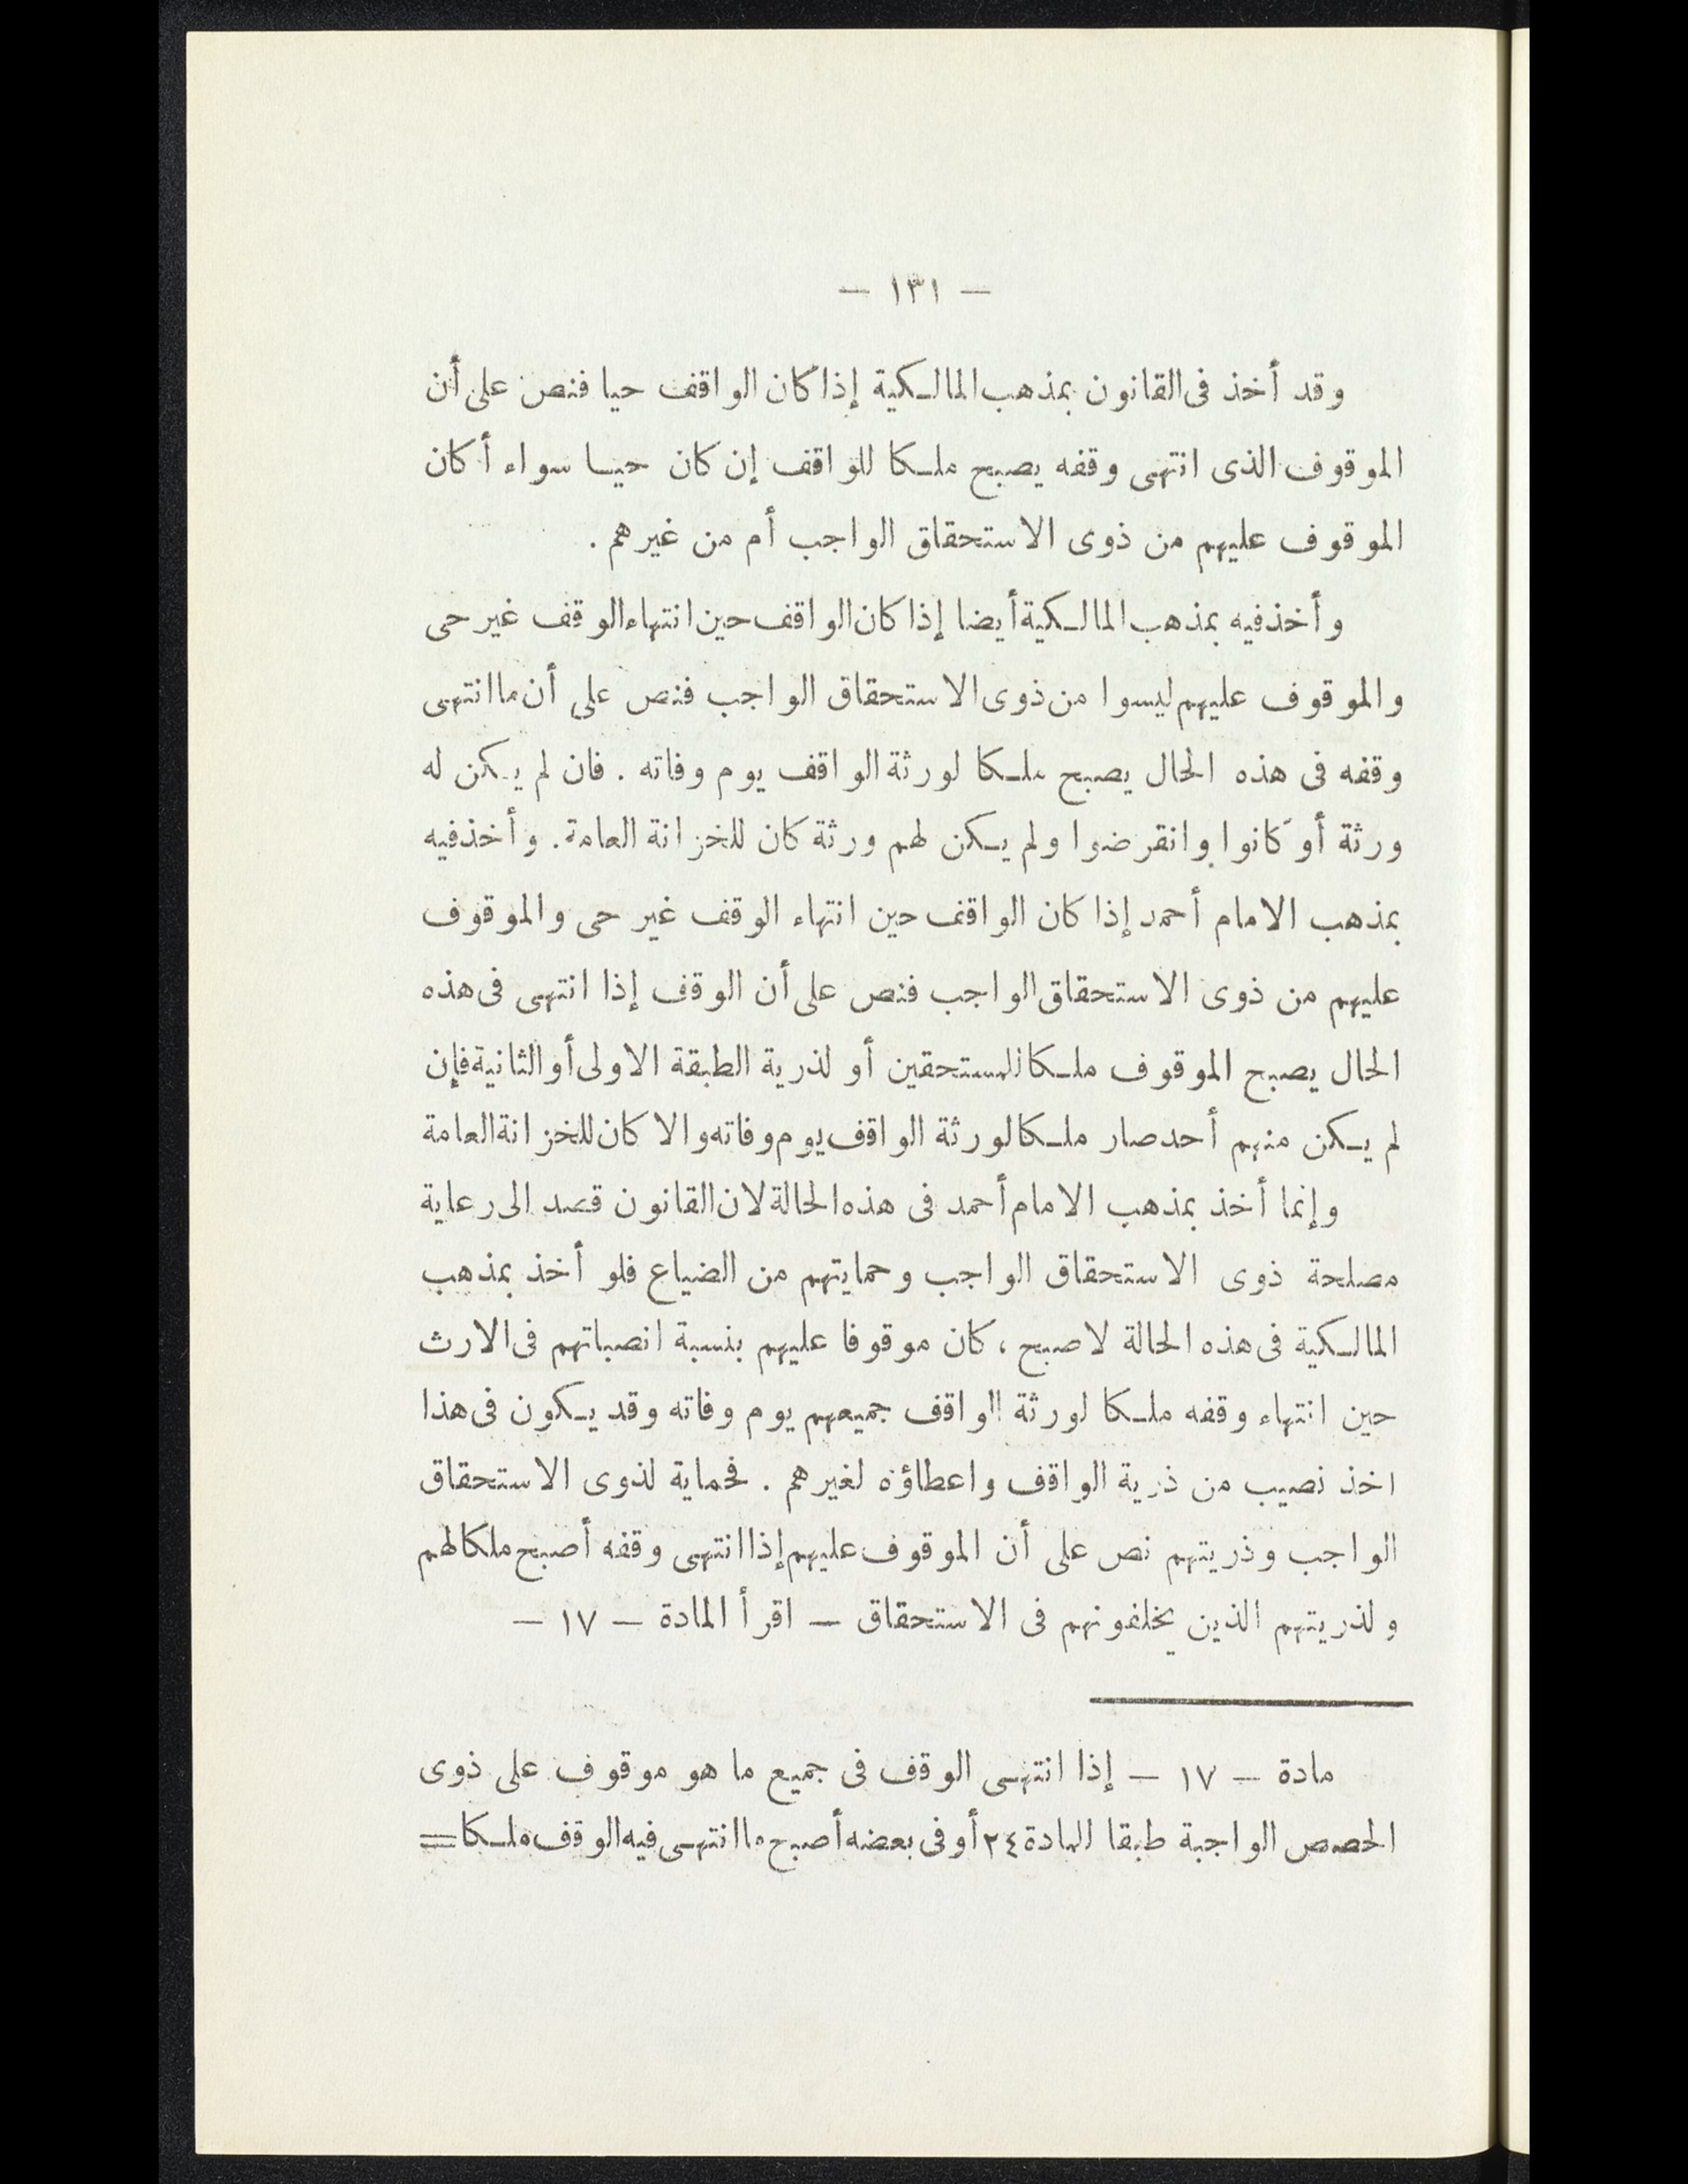 — ١٣١ —
وقد أخذ فى القانون بمذهب المالكية إذا كان الواقف حيا فنص على أن
الموقوف الذى انتهى وقفه يصبح ملكا للواقف إن كان حيا سواء أكان
الموقوف عليهم من ذوى الاستحقاق الواجب أم من غيرهم .
وأخذ فيه بمذهب المالكية أيضا إذا كان الواقف حين انتهاء الوقف غير حى
والموقوف عليهم ليسوا من ذوى الاستحقاق الواجب فنص على أن ما انتهى
وقفه فى هذه الحال يصبح ملكا لورثة الواقف يوم وفاته . فان لم يكن له
ورثة أو كانوا وانقرضوا ولم يكن لهم ورثة كان للخزانة العامة . وأخذ فيه
بمذهب الامام أحمد إذا كان الواقف حين انتهاء الوقف غير حى والموقوف
عليهم من ذوى الاستحقاق الواجب فنص على أن الوقف إذا انتهى فى هذه
الحال يصبح الموقوف ملكا للمستحقين أو لذرية الطبقة الاولى أو الثانية فإن
لم يكن منهم أحد صار ملكا لورثة الواقف يوم وفاته والا كان للخزانة العامة
وإنما أخذ بمذهب الامام أحمد فى هذه الحالة لان القانون قصد الى رعاية
مصلحة ذوى الاستحقاق الواجب وحمايتهم من الضياع فلو أخذ بمذهب
المالكية فى هذه الحالة لاصبح ، كان موقوفا عليهم بنسبة انصباتهم فى الارث
حين انتهاء وقفه ملكا لورثة الواقف جميعهم يوم وفاته وقد يكون فى هذا
اخذ نصيب من ذرية الواقف واعطاؤه لغيرهم . فحماية لذوى الاستحقاق
الواجب وذريتهم نص على أن الموقوف عليهم إذا انتهى وقفه أصبح ملكا لهم
ولذريتهم الذين يخلفونهم فى الاستحقاق — اقرأ المادة — ١٧ —
مادة — ١٧ — إذا انتهى الوقف فى جميع ما هو موقوف على ذوى
الحصص الواجبة طبقا للمادة ٢٤ أو فى بعضه أصبح ما انتهى فيه الوقف ملكا =